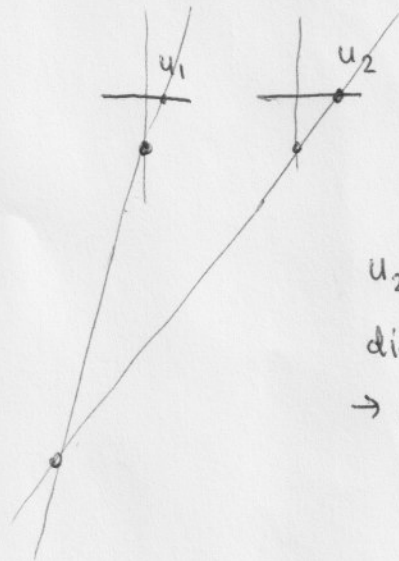 u₁
u₂
u₂
di
→